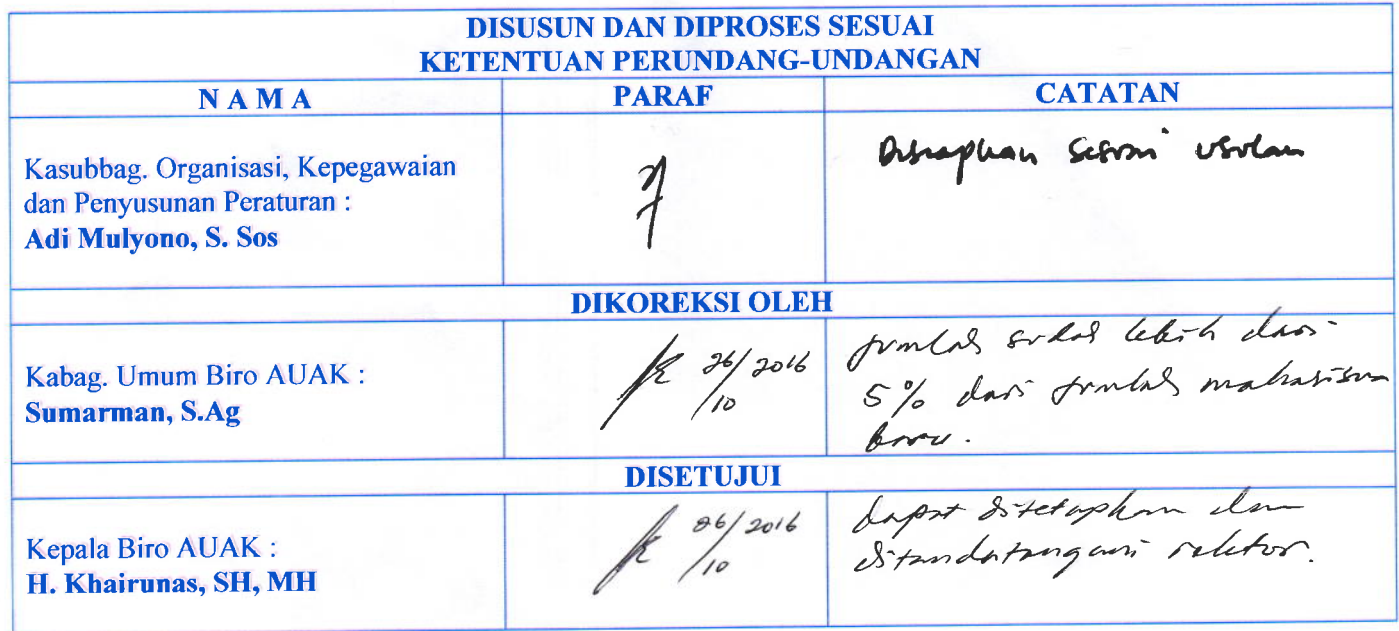 DISUSUN DAN DIPROSES SESUAI
KETENTUAN PERUNDANG-UNDANGAN
N A M A
PARAF
CATATAN
Kasubbag. Organisasi, Kepegawaian
dan Penyusunan Peraturan :
Adi Mulyono, S. Sos
Disiapkan sesuai usulan
DIKOREKSI OLEH
Kabag. Umum Biro AUAK :
Sumarman, S.Ag
26/10 2016
jumlah sudah lebih dari
5% dari jumlah mahasiswa
baru.
DISETUJUI
Kepala Biro AUAK :
H. Khairunas, SH, MH
26/10 2016
dapat ditetapkan dan
ditandatangani rektor.